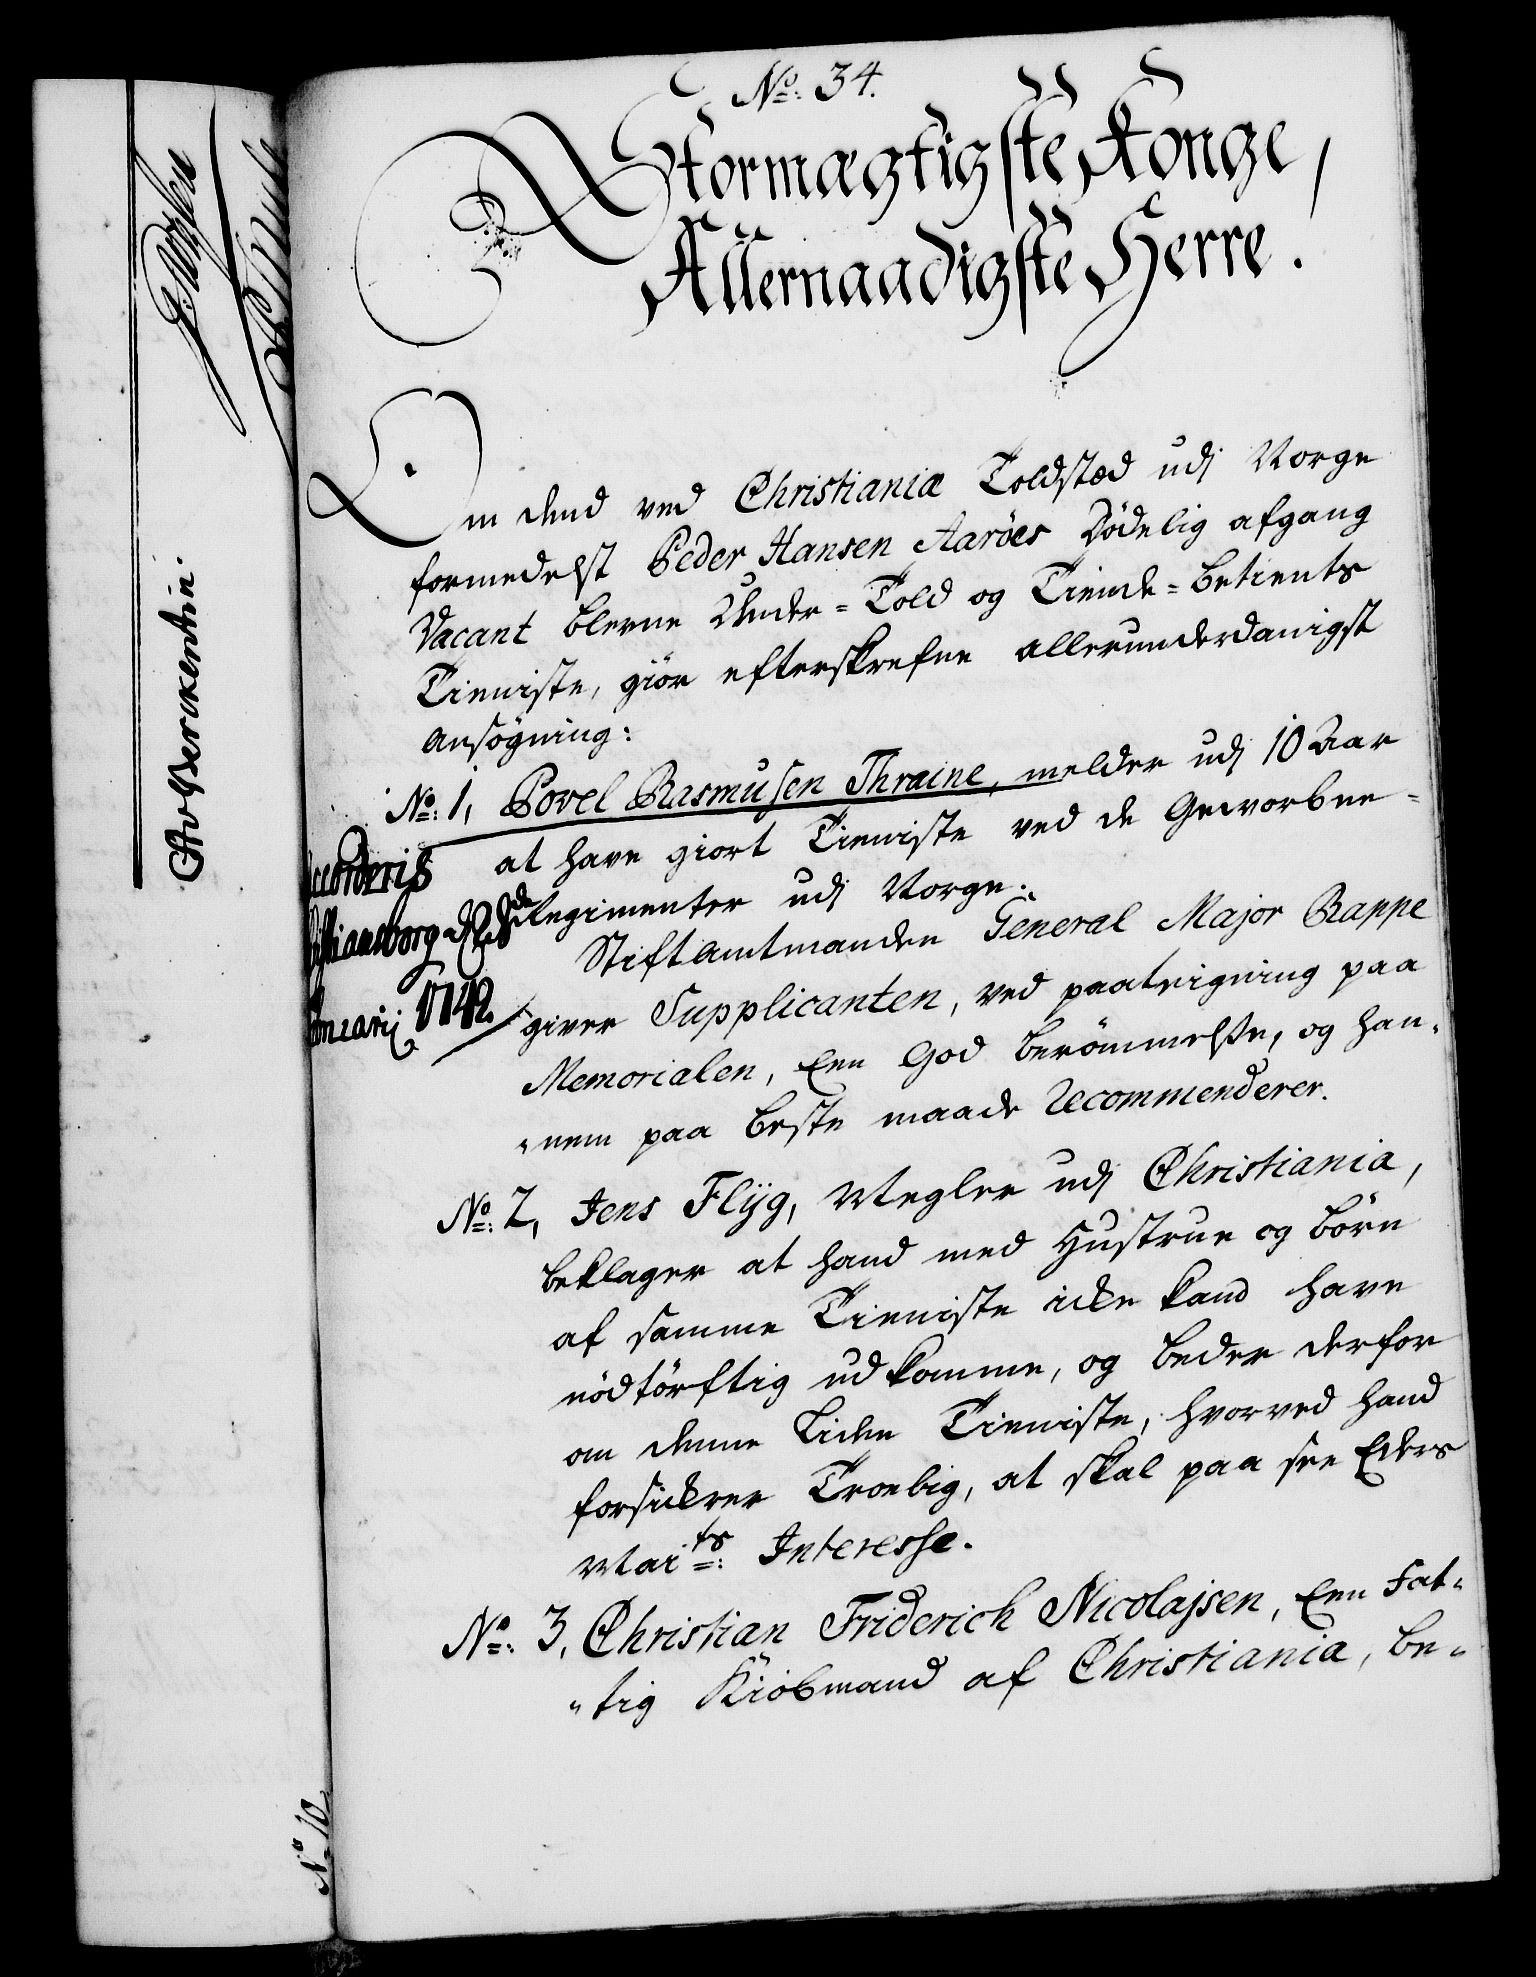 No: 34.
Stormægtigste Konge,
Allernaadigste Herre.
Om dend ved Christianiæ Toldstæd udj Norge
formedelst Peder Hansen Aaröes Dödelig afgang
Vacant blevne Under-Told og Tiende-betients
Tieniste, giör efterskrefne allerunderdanigst
ansögning:
No: 1, Povel Rasmusen Thraine, melder udj 10 Aar
at have giort Tieniste ved de Geworbne-
Regimenter udj Norge.
Stiftamtmanden General Major Rappe
giver Supplicanten, ved paateigning paa
Memorialen, Een God berömmelse, og han-
nem paa beste maade Recommenderer.
No: 2, Jens Flÿg, Megler udj Christiania,
beklager at hand med Hustrue og börn
af samme Tieniste icke kand have
nödtörftig udkomme, og beder derfor
om denne liden Tieniste, hvorved hand
forsickrer Troelig, at skal paa see Eders
Maits: Interesse.
No: 3, Christian Friderich Nicolajsen, Een Fat-
tig Kiöbmand af Christiania, be-
ccorderis
istiansborg d
anuarij 1742.
CAvBerckentin.
No 10